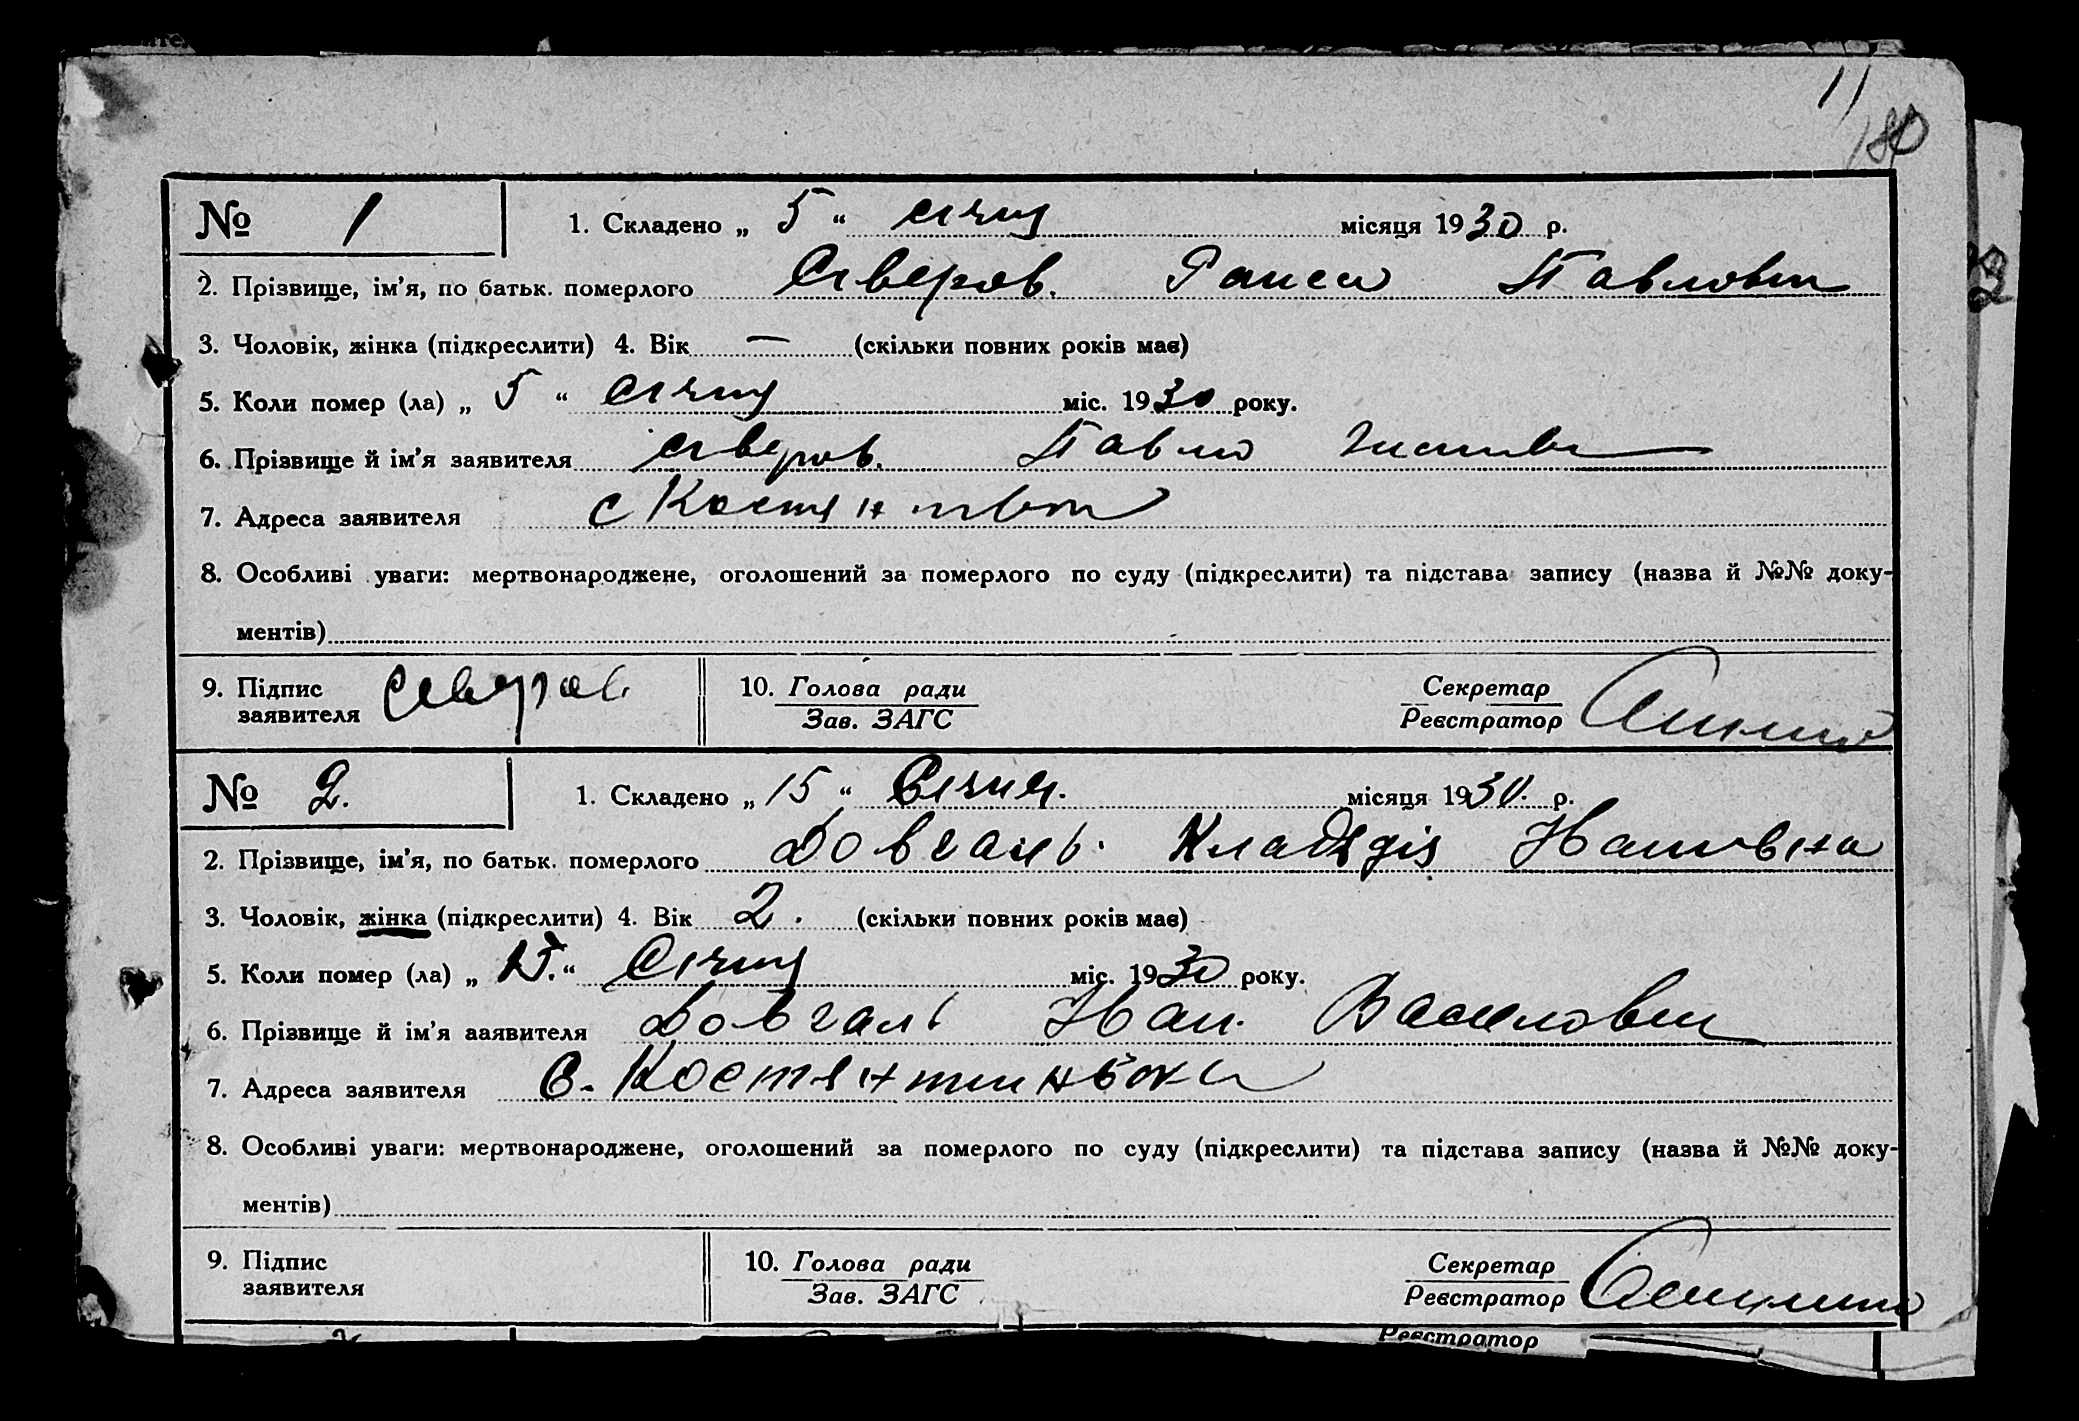 180
№ 1 1. Складено „ 5 “ січня місяця 1930 р.
2. Прізвище, ім’я, по батьк. померлого Сіверов. Раиса Павловн
3. Чоловік, жінка (підкреслити) 4. Вік — (скільки повних років має)
5. Коли помер (ла) „ 5 “ січня міс. 1930 року.
6. Прізвище й ім’я заявителя Сіверов. Павло
7. Адреса заявителя с
8. Особливі уваги: мертвонароджене, оголошений за померлого по суду (підкреслити) та підстава запису (назва й №№ доку-
ментів)
9. Підпис 10. Голова ради Секретар
заявителя Зав. ЗАГС Реєстратор
№ 2. 1. Складено „ 15 “ Січня. місяця 1930. р.
2. Прізвище, ім’я, по батьк. померлого Довгань. Клавдія Ивановна
3. Чоловік, жінка (підкреслити) 4. Вік 2. (скільки повних років має)
5. Коли помер (ла) „ 15. “ Січня міс. 1930 року.
6. Прізвище й ім’я ааявителя Довгань Иван. Василович
7. Адреса заявителя С. Костянтинівка
8. Особливі уваги: мертвонароджене, оголошений за померлого по суду (підкреслити) та підстава запису (назва й №№ доку-
ментів)
9. Підпис 10. Голова ради Секретар
заявителя Зав. ЗАГС Реєстратор
Реєстратор